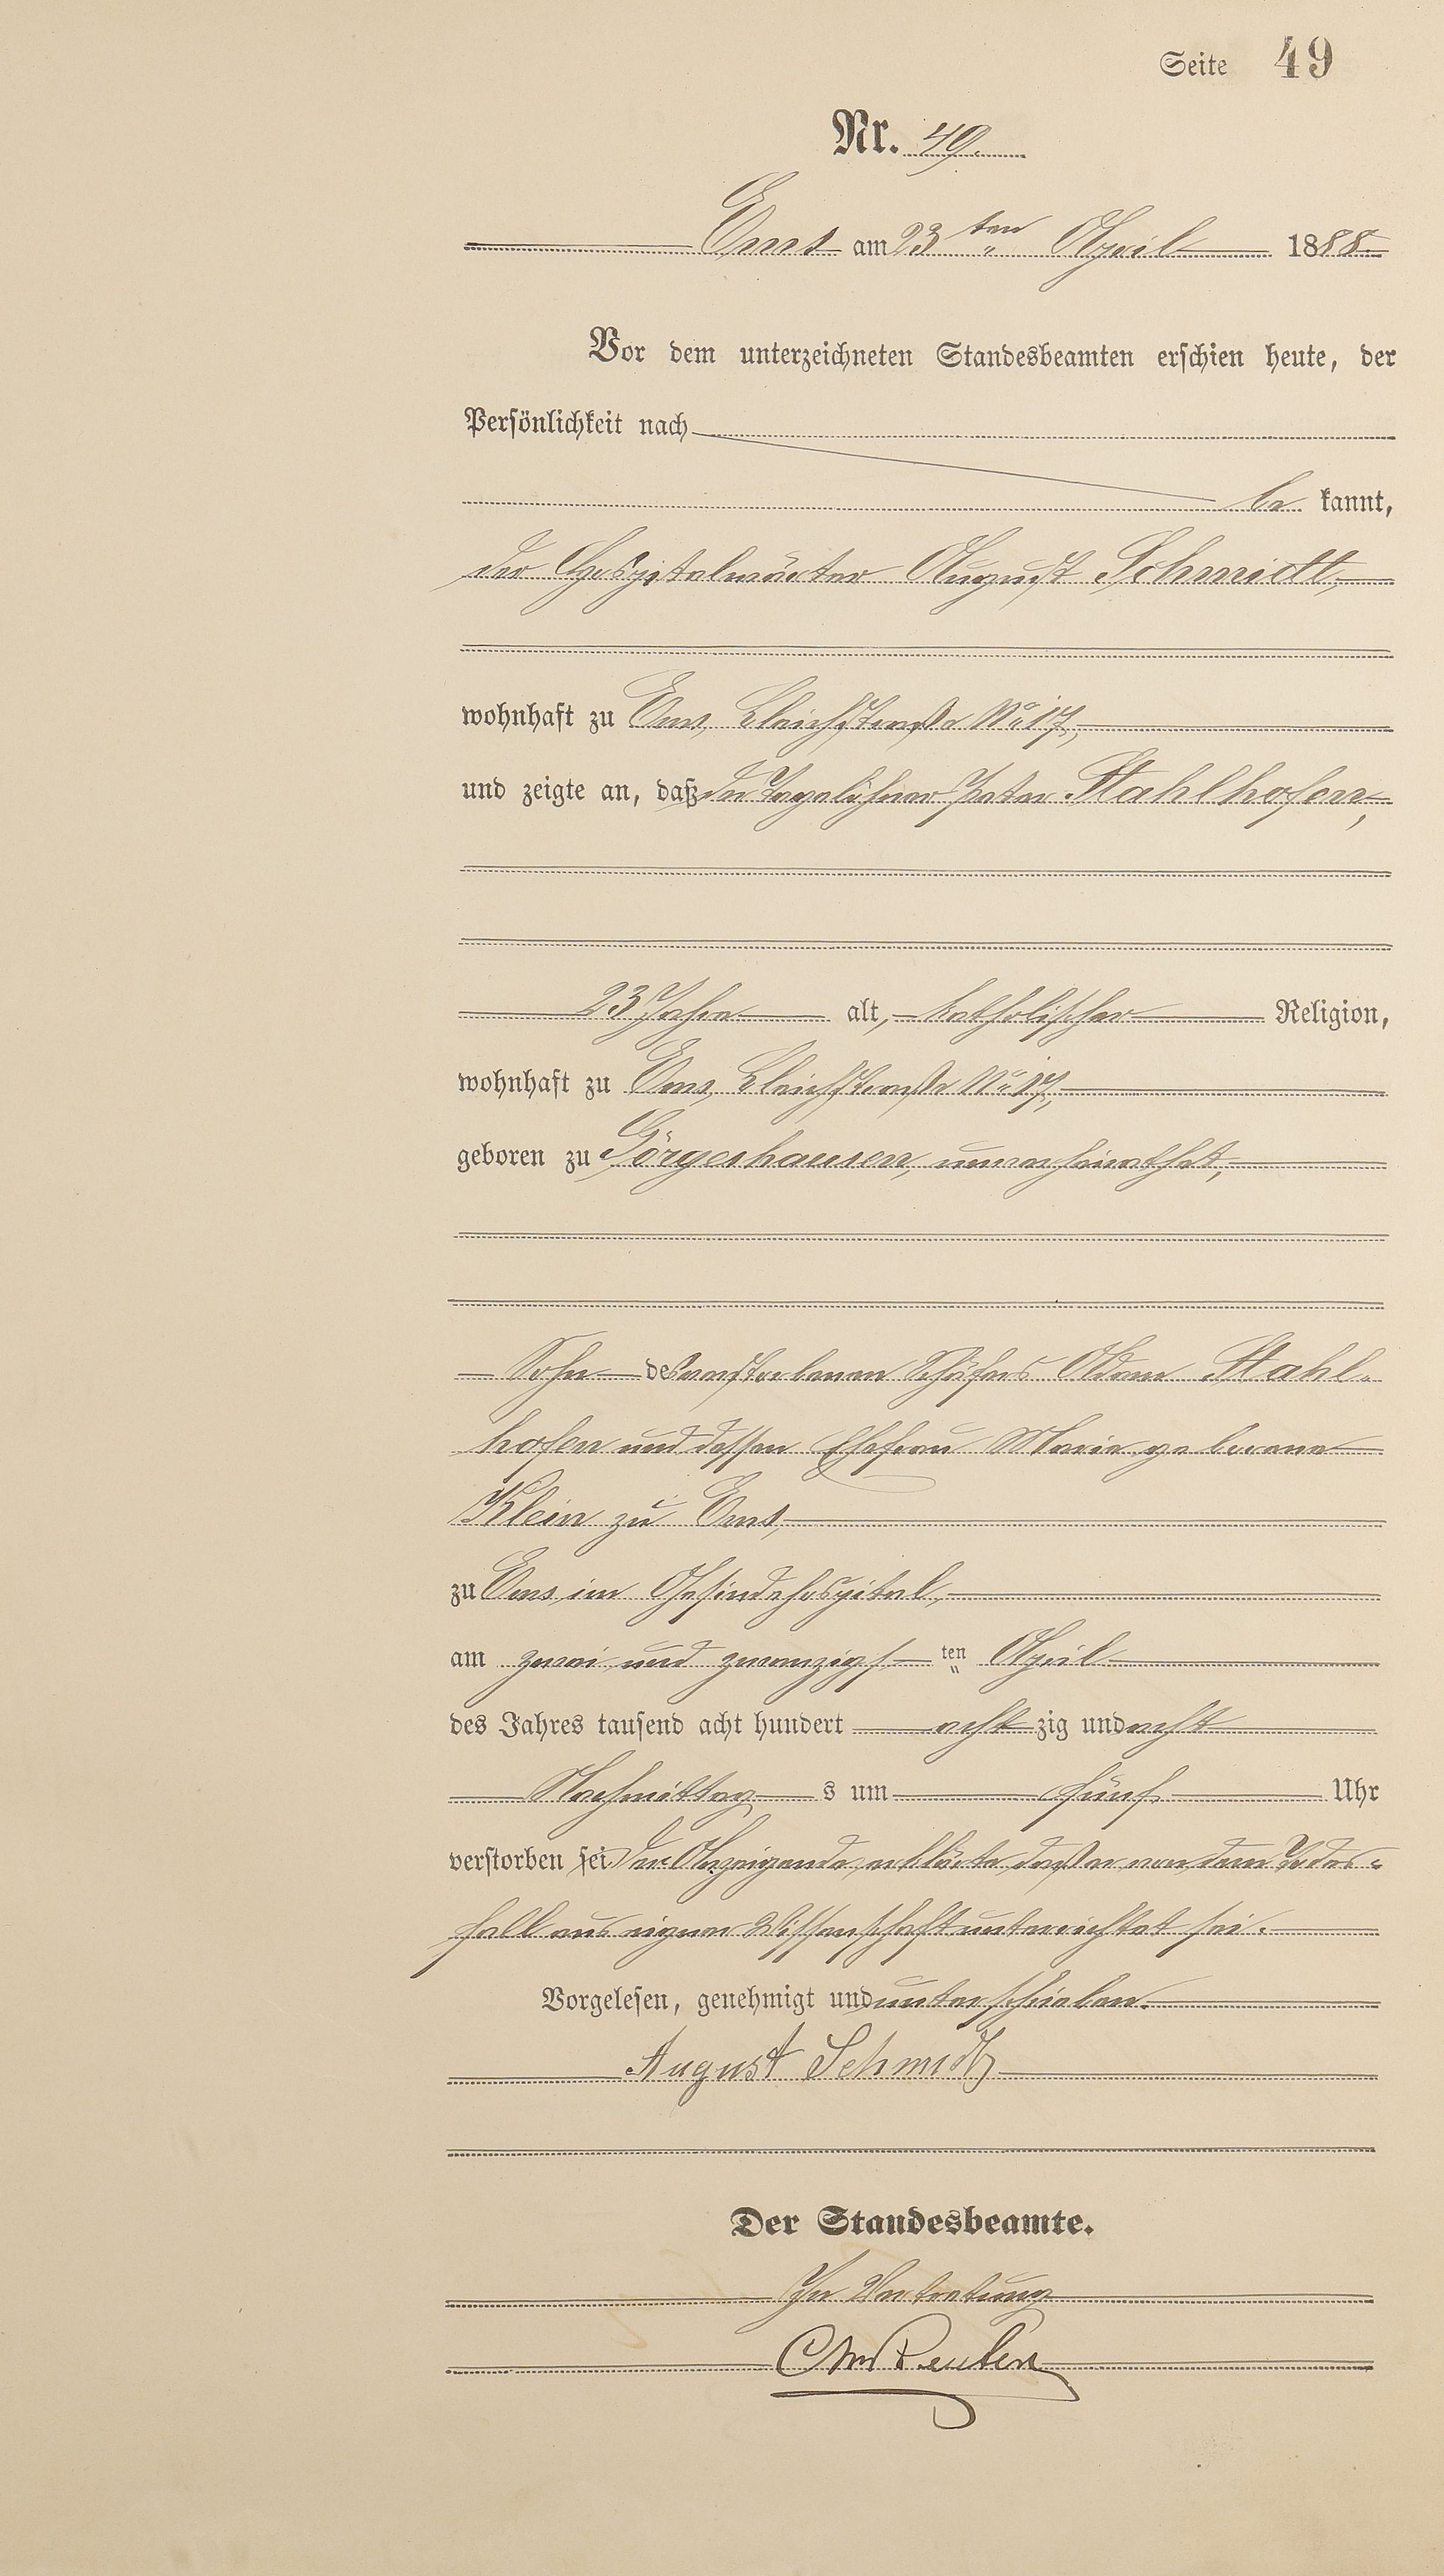 Seite 49
Nr. 49.
Ems am 23ten April 1888.
Vor dem unterzeichneten Standesbeamten erschien heute, der
Persönlichkeit nach
be kannt,
der Hospitalwärter August Schmidt,
wohnhaft zu Ems, Bleichstraße No 17,
und zeigte an, daß der Tagelöhner Peter Stahlhofen,
23 Jahre alt, katholischer Religion,
wohnhaft zu Ems, Bleichstraße No 17,
geboren zu Görgeshausen, unverheirathet,
Sohn des verstorbenen Schäfers Adam Stahl-
hofen und dessen Ehefrau Marie geborene
Klein zu Ems,
zu Ems, im Gesindehospital,
am zwei und zwanzigs ten April
des Jahres tausend acht hundert acht zig und acht
Nachmittag s um fünf Uhr
verstorben sei. Der Anzeigende erklärte daß er von dem Todes-
fall aus eigner Wissenschaft unterrichtet sei.
Vorgelesen, genehmigt und unterschrieben.
August Schmidt
Der Standesbeamte.
In Vertretung